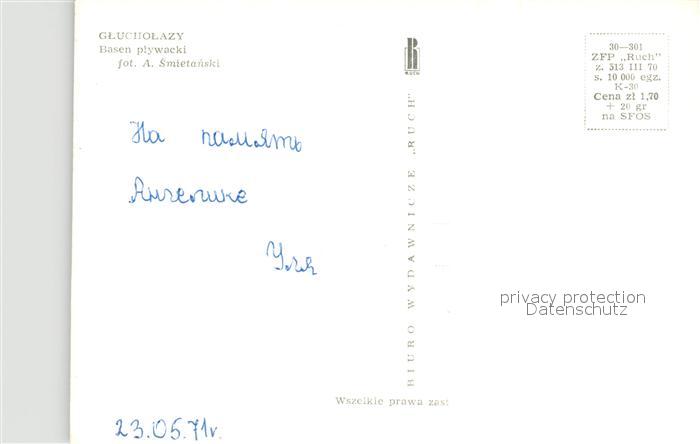 GŁUCHOŁAZY
Basen pływacki
fot. A. Śmietański
RUCH
30—301
ZFP „Ruch"
z. 513 III 70
s. 10 000 egz.
K-30
Cena zł 1,70
+ 20 gr
na SFOS
На память
Анжелике
BIURO WYDAWNICZE „RUCH"
privacy protection
Datenschutz
Wszelkie prawa zast
23.05.71r.